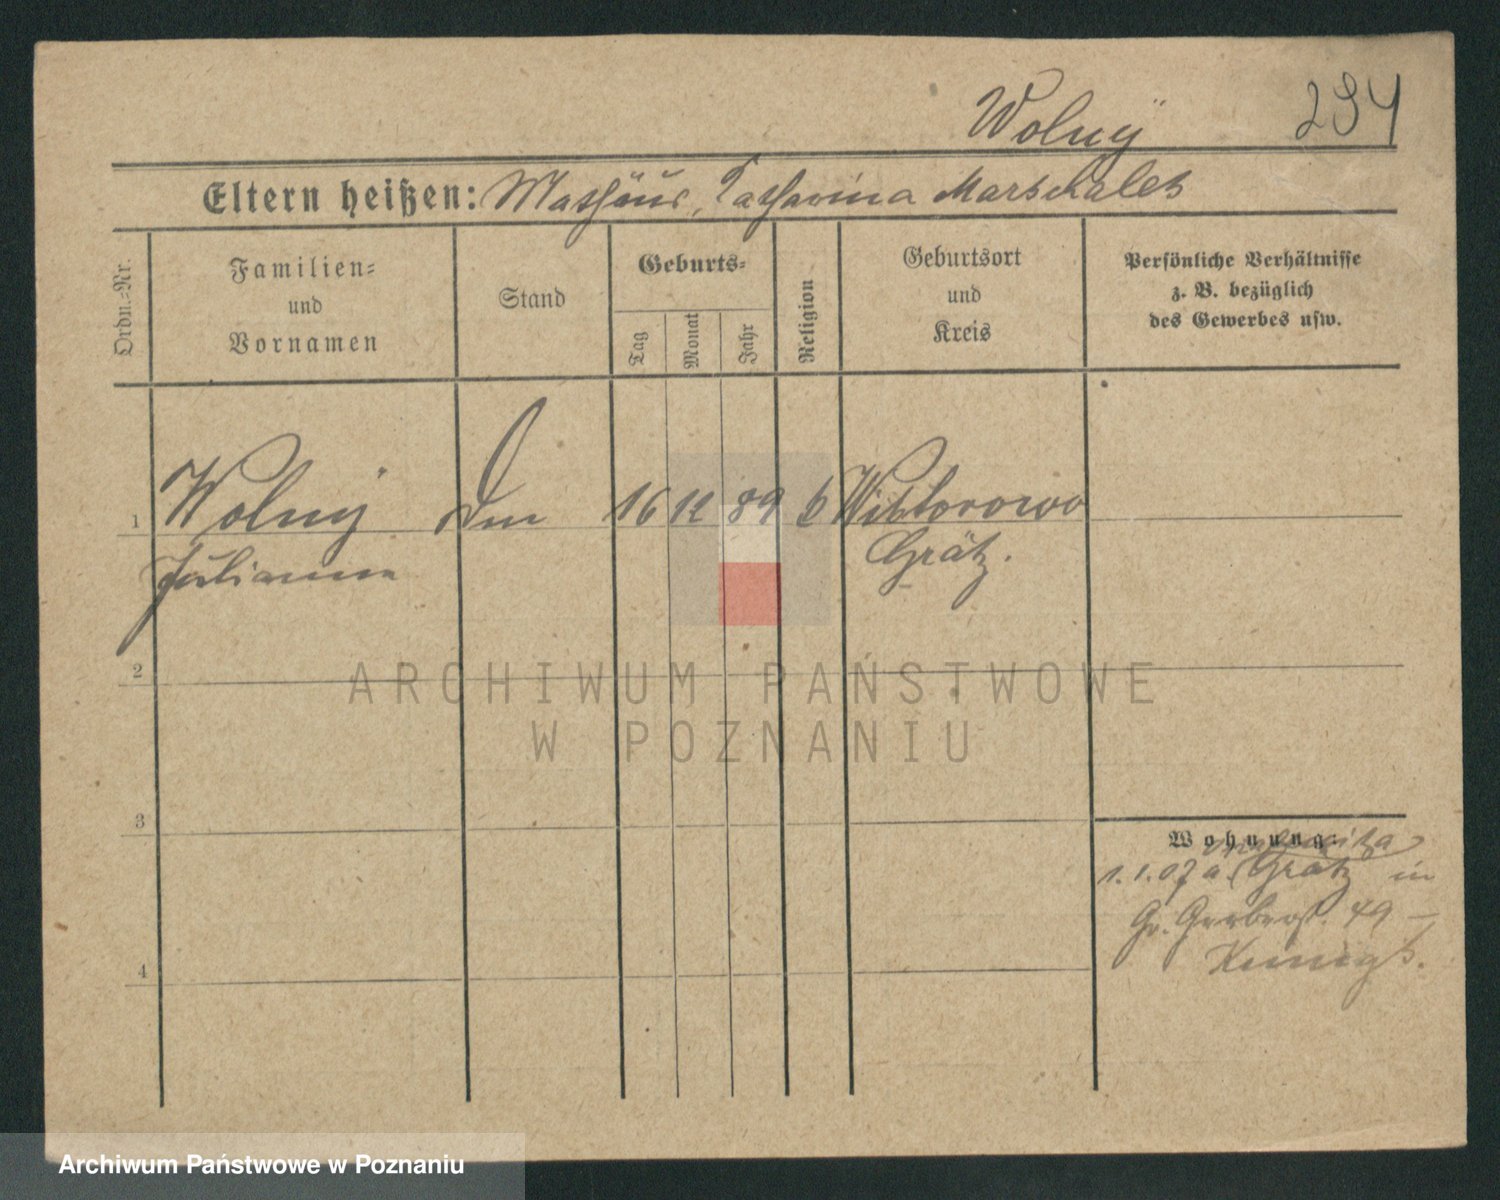 Wolnÿ
294
Eltern heißen: Mathäus, Katharina Marschalek
Ordn.-Nr.
Familien-
und
Vornamen
Stand
Geburts-
Tag
Monat
Jahr
Religion
Geburtsort
und
Kreis
Persönliche Verhältnisse
z. B. bezüglich
des Gewerbes usw.
1
Wolny
16
12
89
Wiktorowo
Julianna
Grätz.
2
ARCHIWUM PAŃSTWOWE
W POZNANIU
3
Wohnung:
1.1.07 a. Grätz in
Gr. Gerberst. 49 –
4
Archiwum Państwowe w Poznaniu